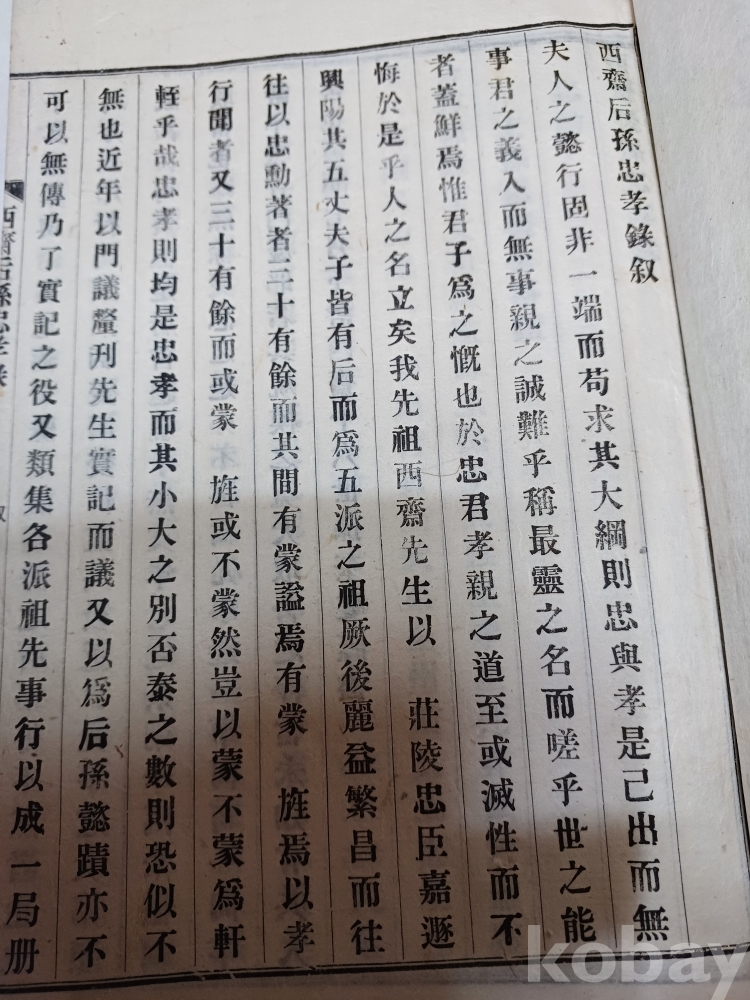 西齋后孫忠孝錄叙
夫人之懿行固非一端而苟求其大綱則忠與孝是已出而無
事君之義入而無事親之誠難乎稱最靈之名而嗟乎世之能
者蓋鮮焉惟君子爲之慨也於忠君孝親之道至或滅性而不
悔於是乎人之名立矣我先祖西齋先生以 莊陵忠臣嘉遯
興陽其五丈夫子皆有后而爲五派之祖厥後麗益繁昌而往
往以忠勳著者二十有餘而其間有蒙謚焉有蒙 旌焉以孝
行聞者又三十有餘而或蒙 旌或不蒙然豈以蒙不蒙爲軒
輊乎哉忠孝則均是忠孝而其小大之別否泰之數則恐似不
無也近年以門議釐刊先生實記而議又以爲后孫懿蹟亦不
可以無傳乃了實記之役又類集各派祖先事行以成一局册
西齋后孫忠孝錄
叙
kobay